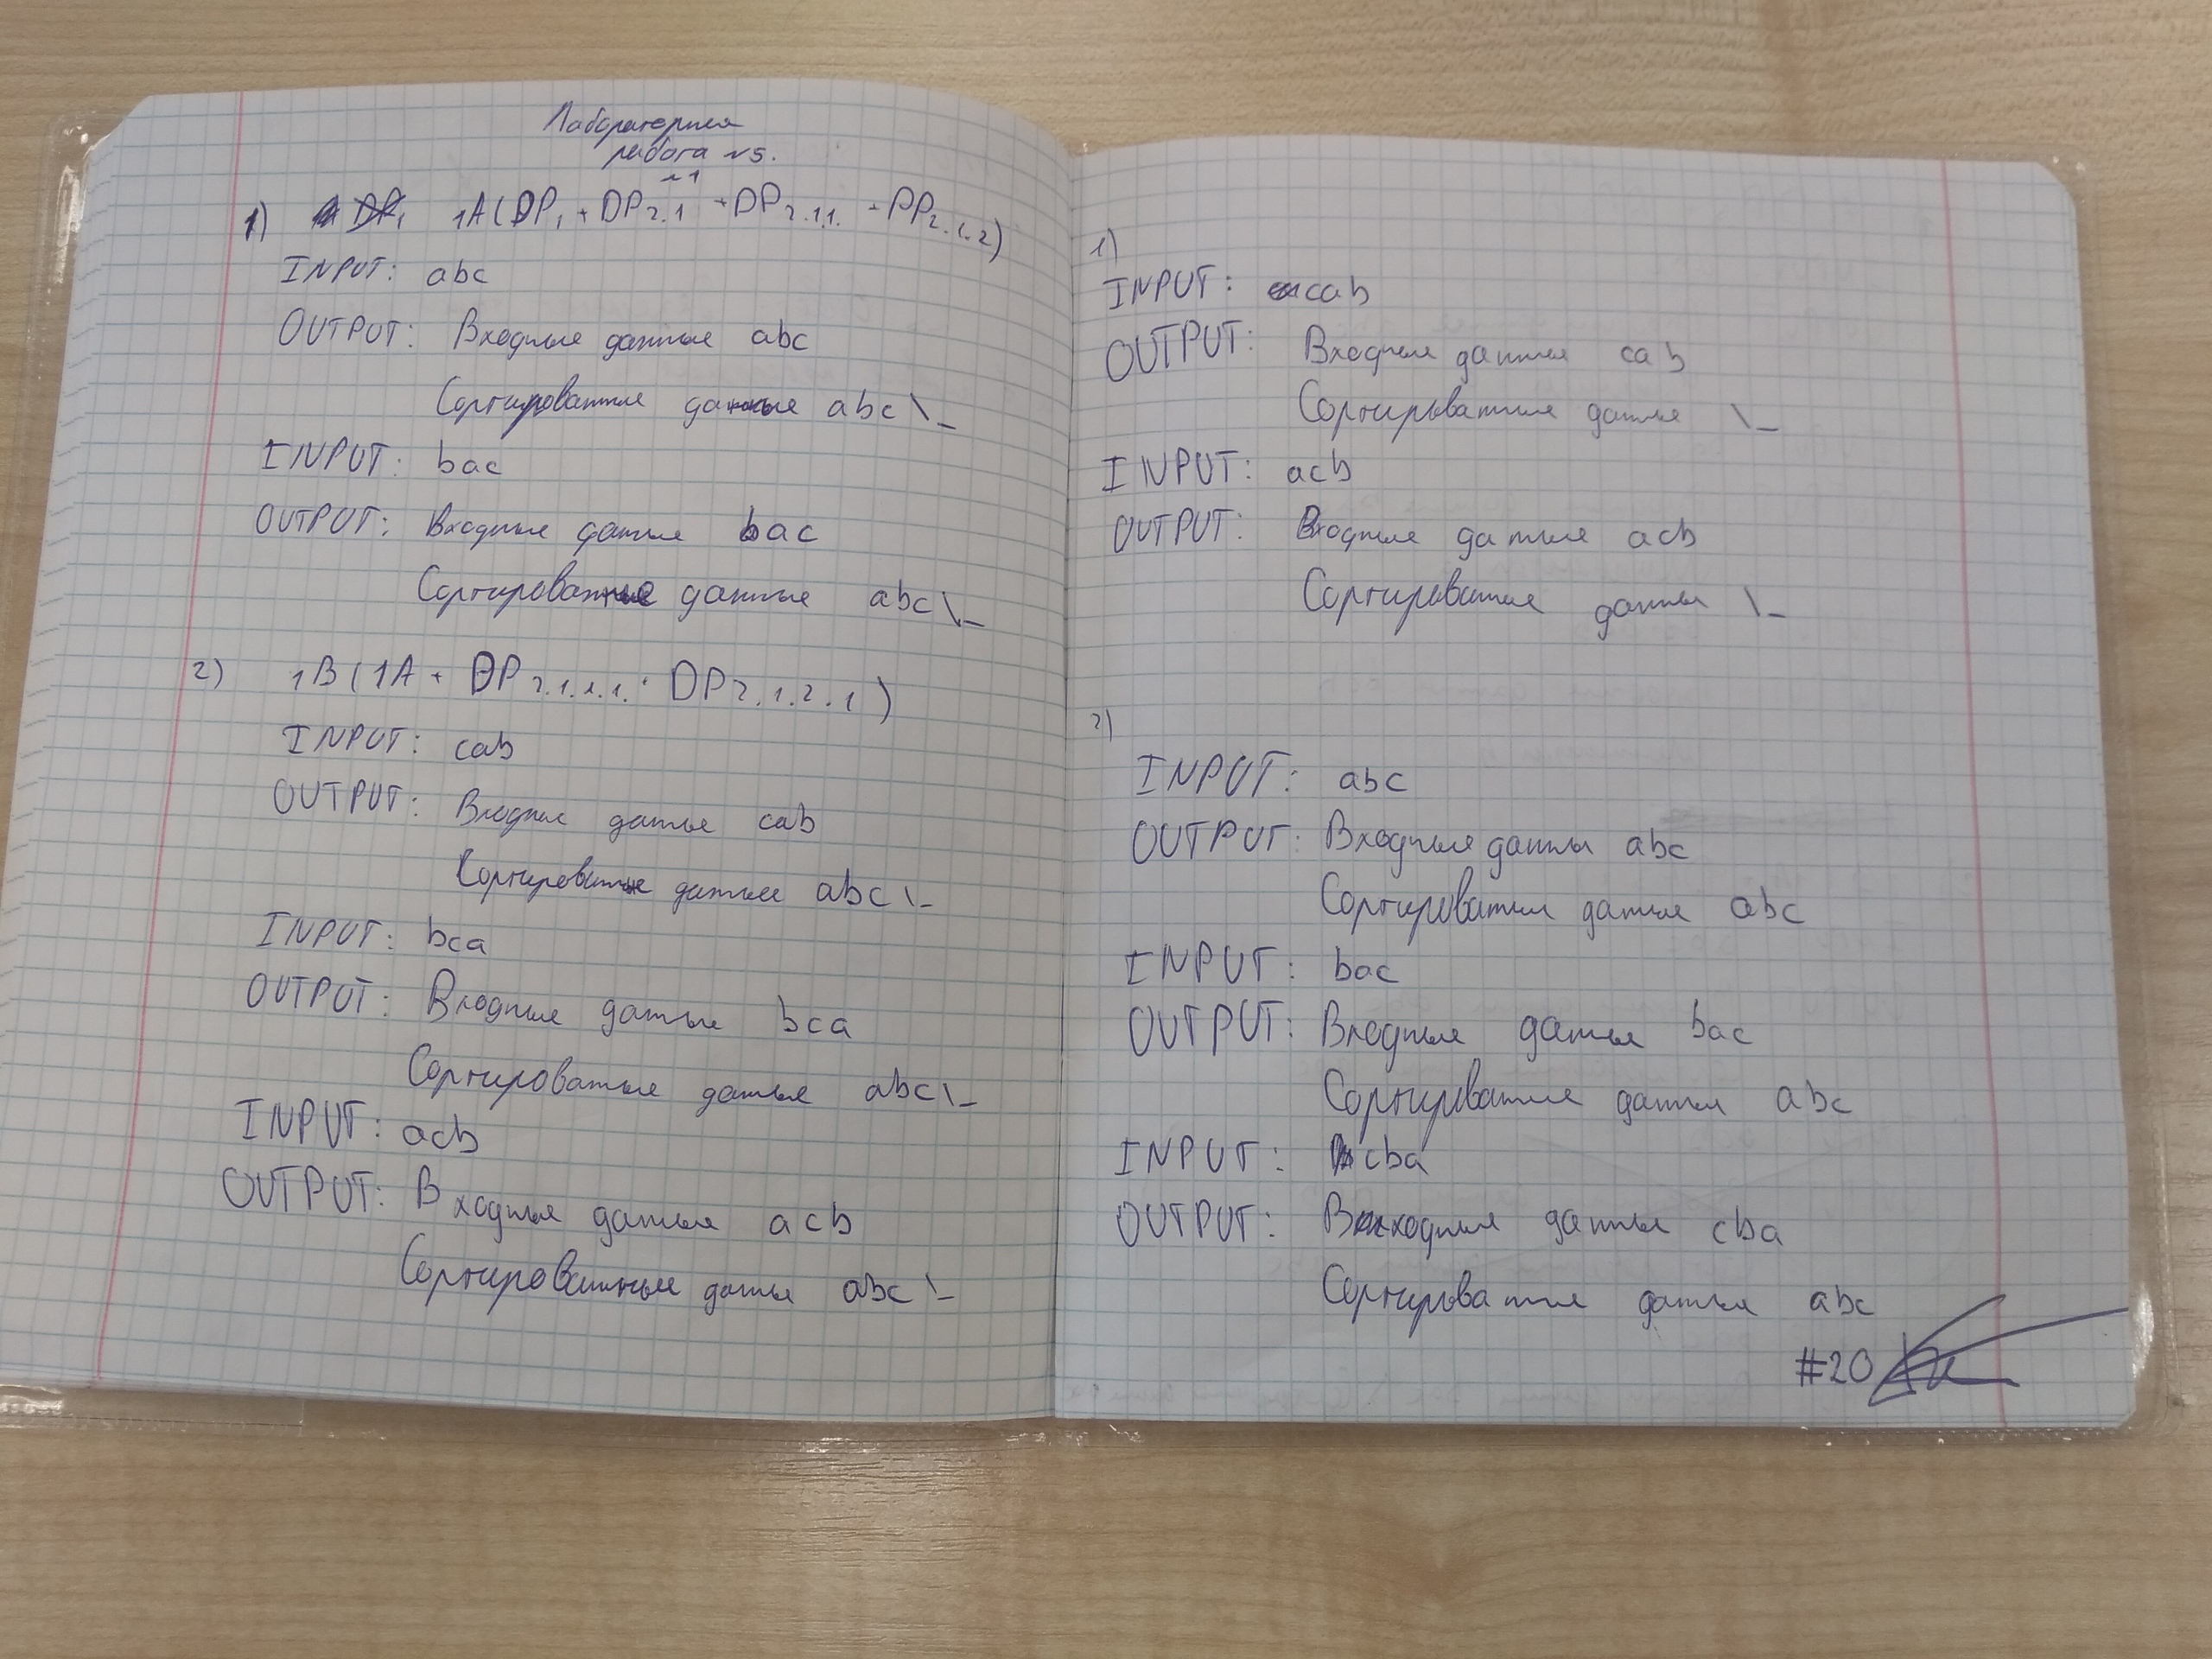 Лабораторная
работа №5.
№1
1) 1A(DP1 + DP2.1 + DP2.1.1. + DP2.1.2)
INPUT: abc
OUTPUT: Входные данные abc
Сортированные данные abc\_
INPUT: bac
OUTPUT: Входные данные bac
Сортированные данные abc\_
2) 1B(1A + DP2.1.1.1. + DP2.1.2.1)
INPUT: cab
OUTPUT: Входные данные cab
Сортированные данные abc\_
INPUT: bca
OUTPUT: Входные данные bca
Сортированные данные abc\_
INPUT: acb
OUTPUT: Входные данные acb
Сортированные данные abc\_
1)
INPUT: cab
OUTPUT: Входные данные cab
Сортированные данные \_
INPUT: acb
OUTPUT: Входные данные acb
Сортированные данные \_
2)
INPUT: abc
OUTPUT: Входные данные abc
Сортированные данные abc
INPUT: bac
OUTPUT: Входные данные bac
Сортированные данные abc
INPUT: cba
OUTPUT: Входные данные cba
Сортированные данные abc
#20